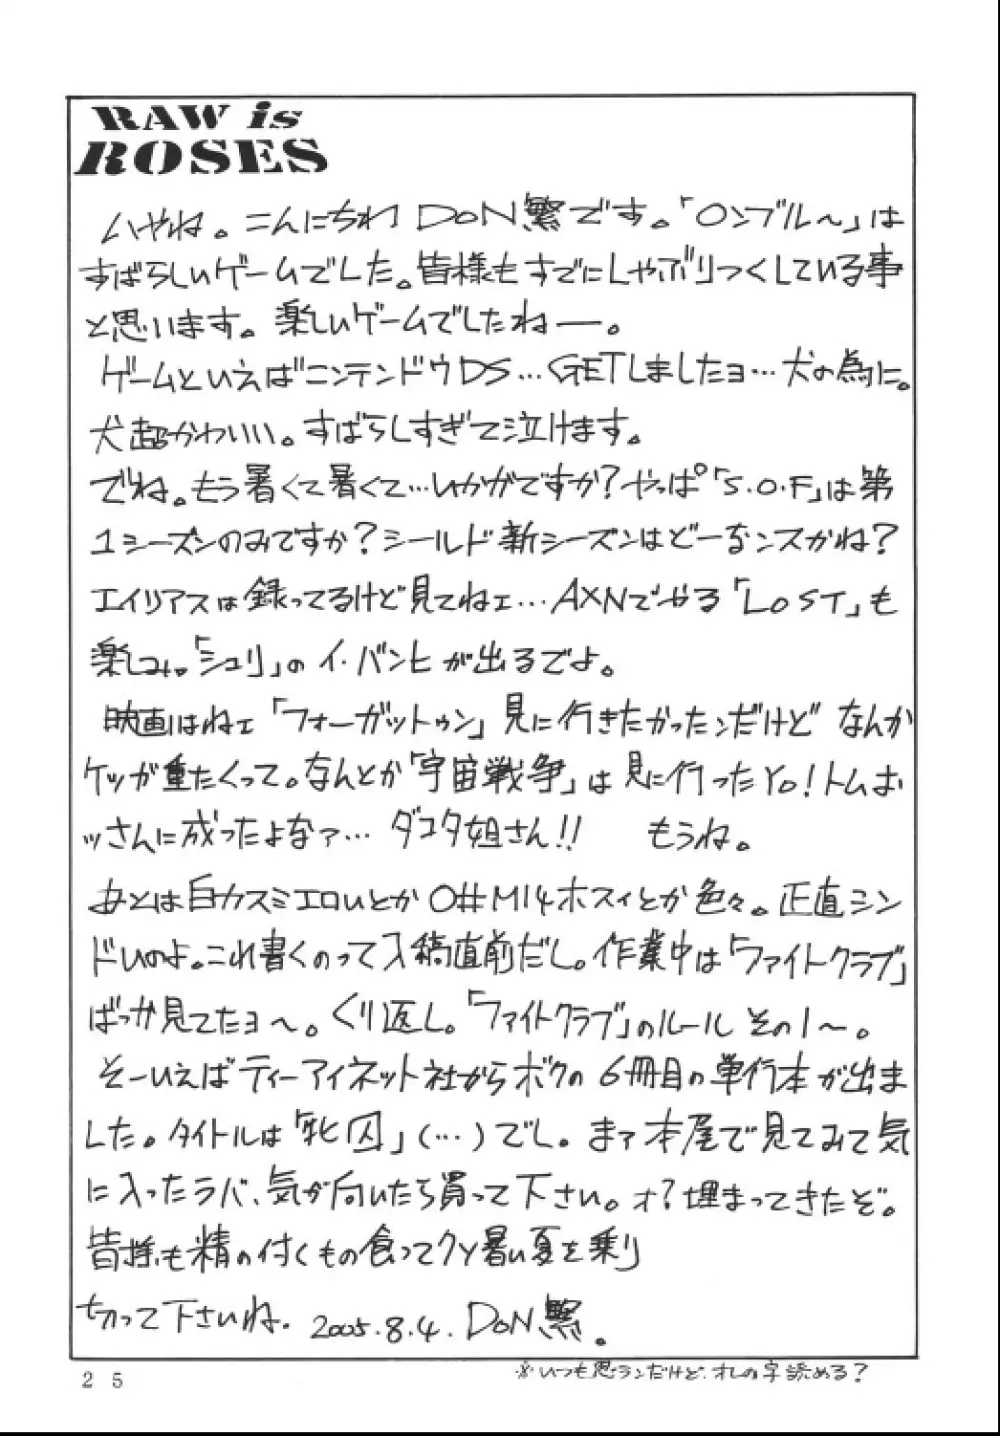 RAW is
ROSES
ハやね。こんにちわ DoN繁です。「ロンブル〜」は
すばらしいゲームでした。皆様もすでにしゃぶりつくしている事
と思います。楽しいゲームでしたねー。
ゲームといえばニンテンドウDS…GETしましたョ…犬の為に。
犬超かわいい。すばらしすぎて泣けます。
でね。もう暑くて暑くて…いかがですか?やっぱ「S.O.F」は第
1シーズンのみですか?シールド新シーズンはどーなンスかね?
エイリアスは録ってるけど見てねェ…AXNでやる「LOST」も
楽しみ。「シュリ」のイ・バンヒが出るでよ。
映画はねェ「フォーガットゥン」見に行きたかったンだけど なんか
ケツが重たくって。なんとか「宇宙戦争」は見に行ったYo!トムお
ッさんに成ったよなァ… ダコタ姐さん!! もうね。
あとは白カスミエロいとかO#M14ホスィとか色々。正直シン
ドいのよ。これ書くのって入稿直前だし。作業中は「ファイトクラブ」
ばっか見てたョ〜。くり返し。「ファイトクラブ」のルール その1〜。
そーいえばティーアイネット社からボクの6冊目の単行本が出ま
した。タイトルは「牝囚」(…)でし。まァ本屋で見てみて気
に入ったラバ、気が向いたら買って下さい。オ?埋まってきたぞ。
皆様も精の付くもの食ってクソ暑い夏を乗り
切って下さいね。2005.8.4. DoN繁。
※いつも思うンだけど、オレの字読める?
25